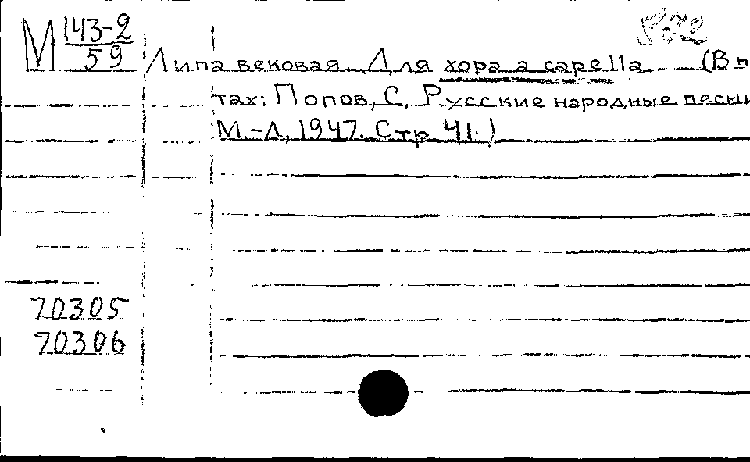 М 143-2
59
Липа вековая. Для хора a capella. (В н
тах: Попов, С. Русские народные песни
М.-Л., 1947. Стр. 41.)
70305
70306